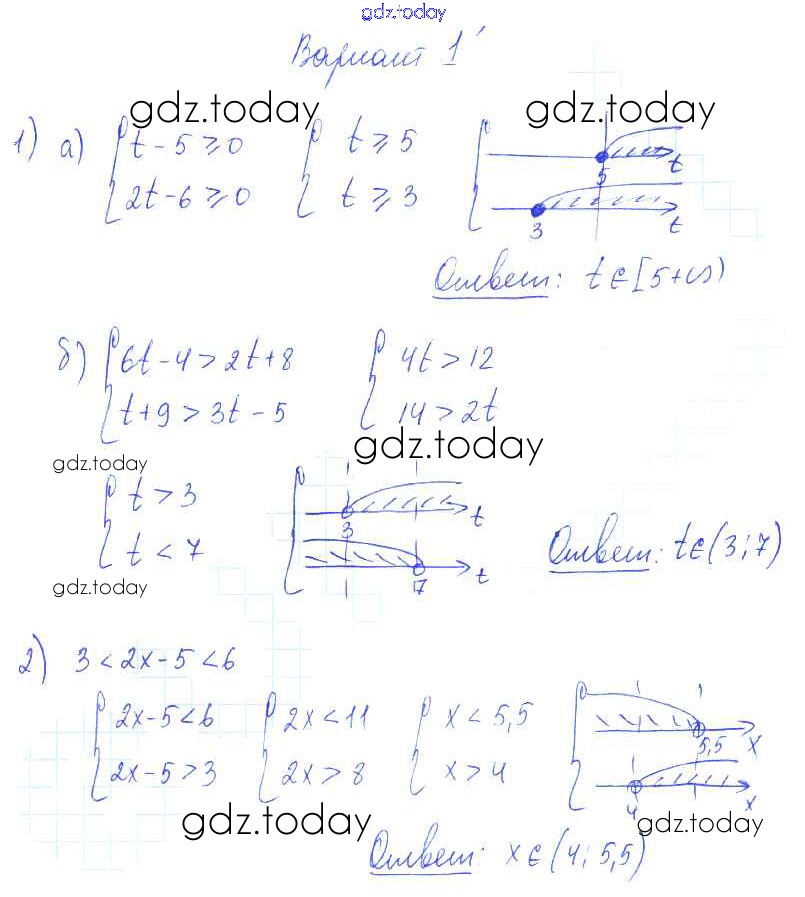 gdz.today
Вариант 1
gdz.today gdz.today
1) а) { t - 5 ⩾ 0 { t ⩾ 5 5 t
{ 2t - 6 ⩾ 0 { t ⩾ 3 3 t
Ответ: t ∈ [5 +∞)
б) { 6t - 4 > 2t + 8 { 4t > 12
{ t + 9 > 3t - 5 { 14 > 2t
gdz.today gdz.today
{ t > 3 3 t
{ t < 7 7 t Ответ: t ∈ (3; 7)
gdz.today
2) 3 < 2x - 5 < 6
{ 2x - 5 < 6 { 2x < 11 { x < 5,5 5,5 x
{ 2x - 5 > 3 { 2x > 8 { x > 4 4 x
gdz.today gdz.today
Ответ: x ∈ (4; 5,5)